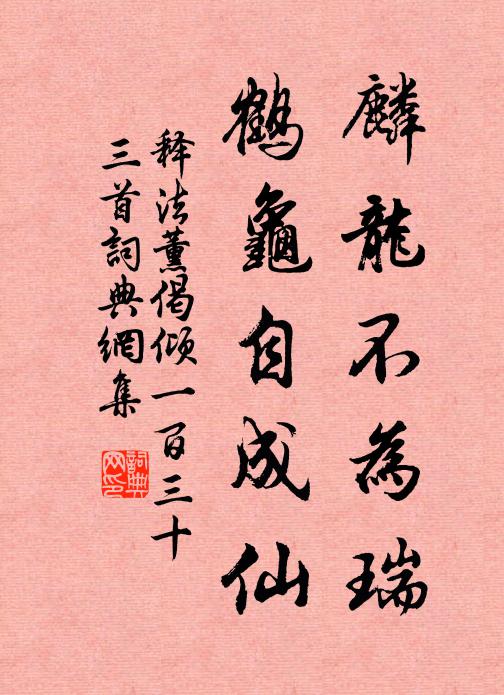 麟龍不為瑞
鶴龜自成仙
释法薰偈倾一百三十
三首詞典網集
詞典网印